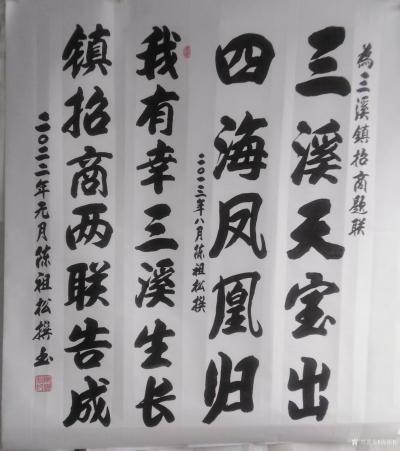 为三溪镇招商题联
三溪天宝出
四海凤凰归
二〇一三年八月陈祖松撰
我有幸三溪生长
镇招商两联告成
二〇二二年元月陈祖松撰书